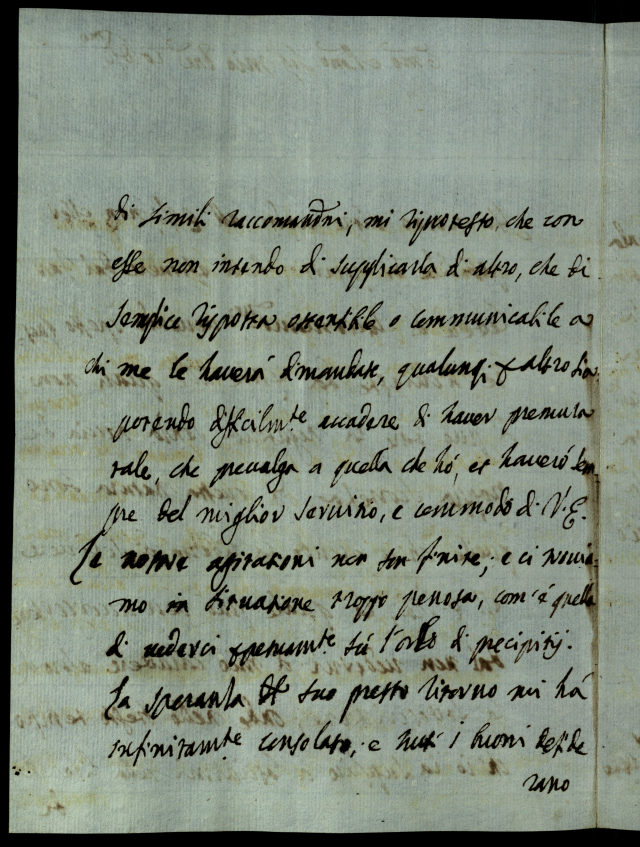 di simili raccomandni, mi riprotesto, che con
esse non intendo di supplicarla di altro, che di
semplice risposta ostensibile o communicabile a
chi me le haverà dimandate, qualunq; altro sia
potendo difficilmte accadere di haver premura
tale, che prevalga a quella che hò, et haverò sem-
pre del miglior servitio, e commodo di V.E.
Le nostre agitationi non son finite; e ci trovia-
mo in situatione troppo penosa, com'è quella
di vederci su l'orlo di precipitij.
La speranza del suo presto ritorno mi hà
infinitamte consolato, e tutti i buoni deside
rano